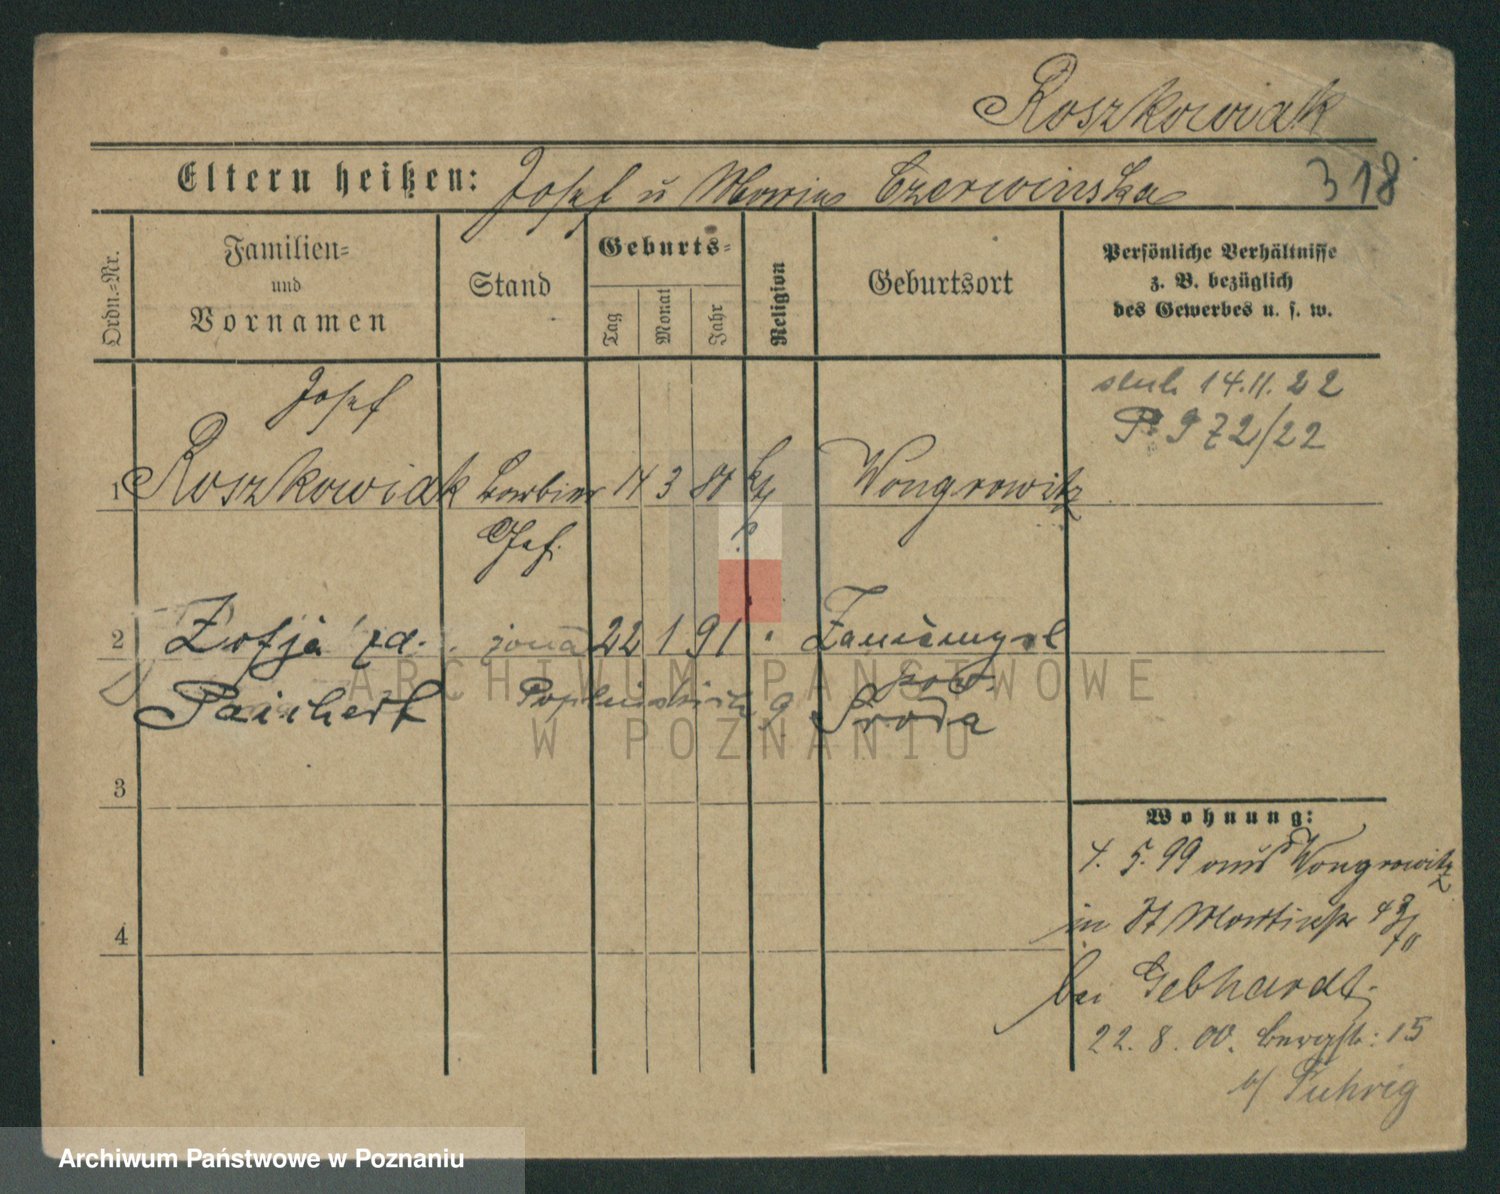 Roszkowiak
Eltern heißen: Josef u Maria Czerwinska 318
Ordn.=Nr.
Familien=
und
Vornamen
Stand
Geburts=
Tag
Monat
Jahr
Religion
Geburtsort
Persönliche Verhältnisse
z. B. bezüglich
des Gewerbes u. s. w.
14.11.22
972/22
Josef
1 Roszkowiak Barbier 14 3 80 kt Wongrowitz
Geh.
2 Zofja żona 22 1 91 Zaniemysl
pow.
Środa
3
Wohnung:
4. 5. 99 aus Wongrowitz
in St Martinstr
4
bei Gebhardt
22. 8. 00. Bergstr: 15
b/
ARCHIWUM PAŃSTWOWE
W POZNANIU
Archiwum Państwowe w Poznaniu